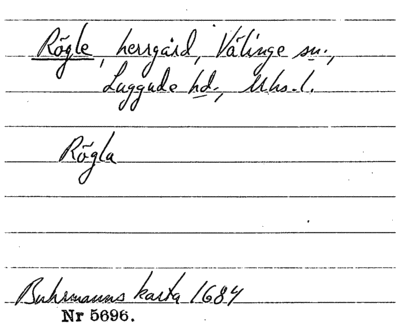 Rögle, herrgård, Välinge sn.,
Luggude hd., Mhs. l.
Rögla
Buhrmanns karta 1684
Nr 5696.